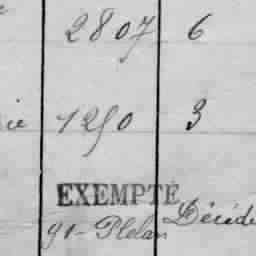 2807 6
1290 3
EXEMPTÉ
91-Plélan Décédé